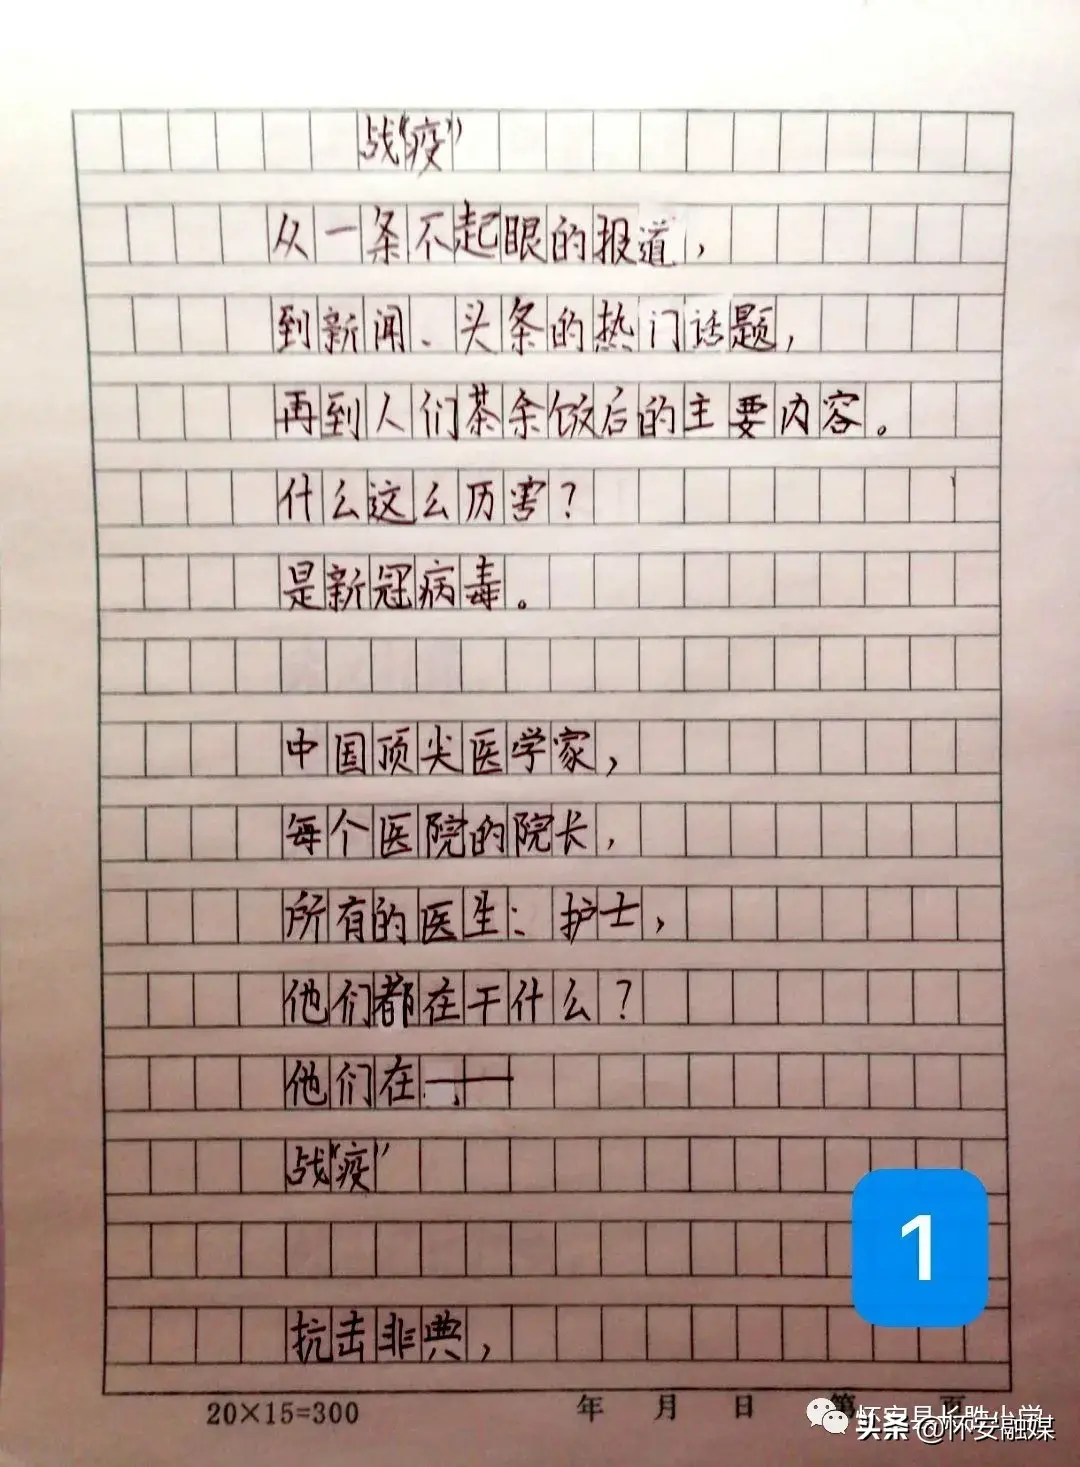 战“疫”
从一条不起眼的报道，
到新闻、头条的热门话题，
再到人们茶余饭后的主要内容。
什么这么厉害？
是新冠病毒。
中国顶尖医学家，
每个医院的院长，
所有的医生：护士，
他们都在干什么？
他们在——
战“疫”
抗击非典，
1
20×15=300 年 月 日 第 页
怀安县长胜小学
头条 @怀安融媒